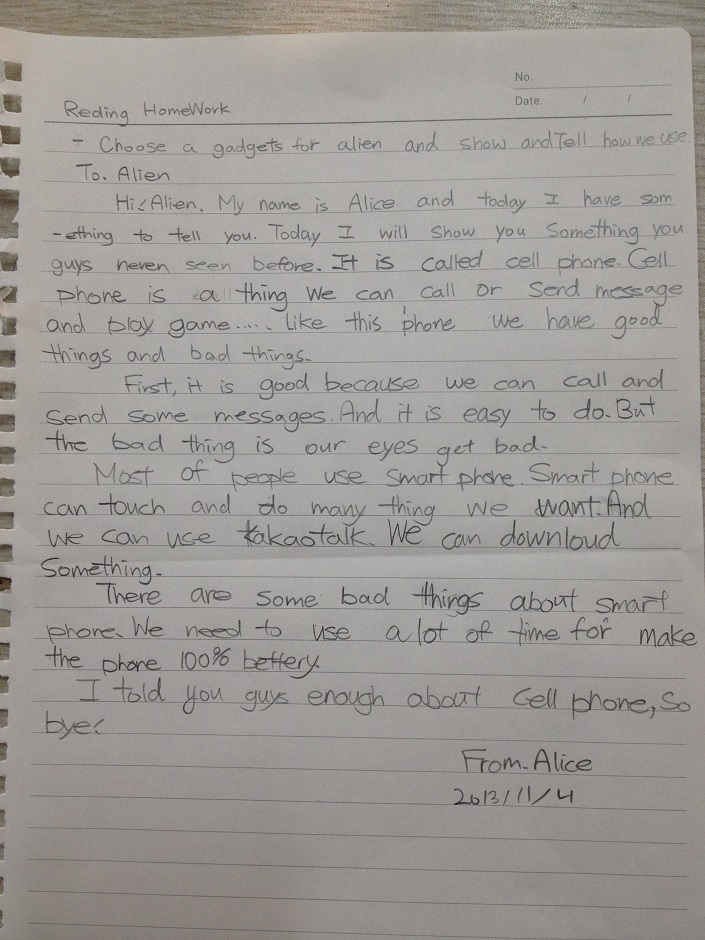 No.
Date. / /
Reding HomeWork
- Choose a gadgets for alien and show and Tell how we use.
To. Alien
Hi! Alien. My name is Alice and today I have som
-ething to tell you. Today I will show you Something you
guys neven seen before. It is called cell phone. Cell
phone is a thing we can call or Send message
and play game..... Like this phone we have good
things and bad things.
First, it is good because we can call and
Send some messages. And it is easy to do. But
the bad thing is our eyes get bad.
Most of people use smart phone. Smart phone
can touch and do many thing we want. And
we can use kakaotalk. We can downloud
Something.
There are some bad things about smart
phone. We need to use a lot of time for make
the phone 100% bettery.
I told you guys enough about Cell phone, So
bye!
From. Alice
2013/11/4